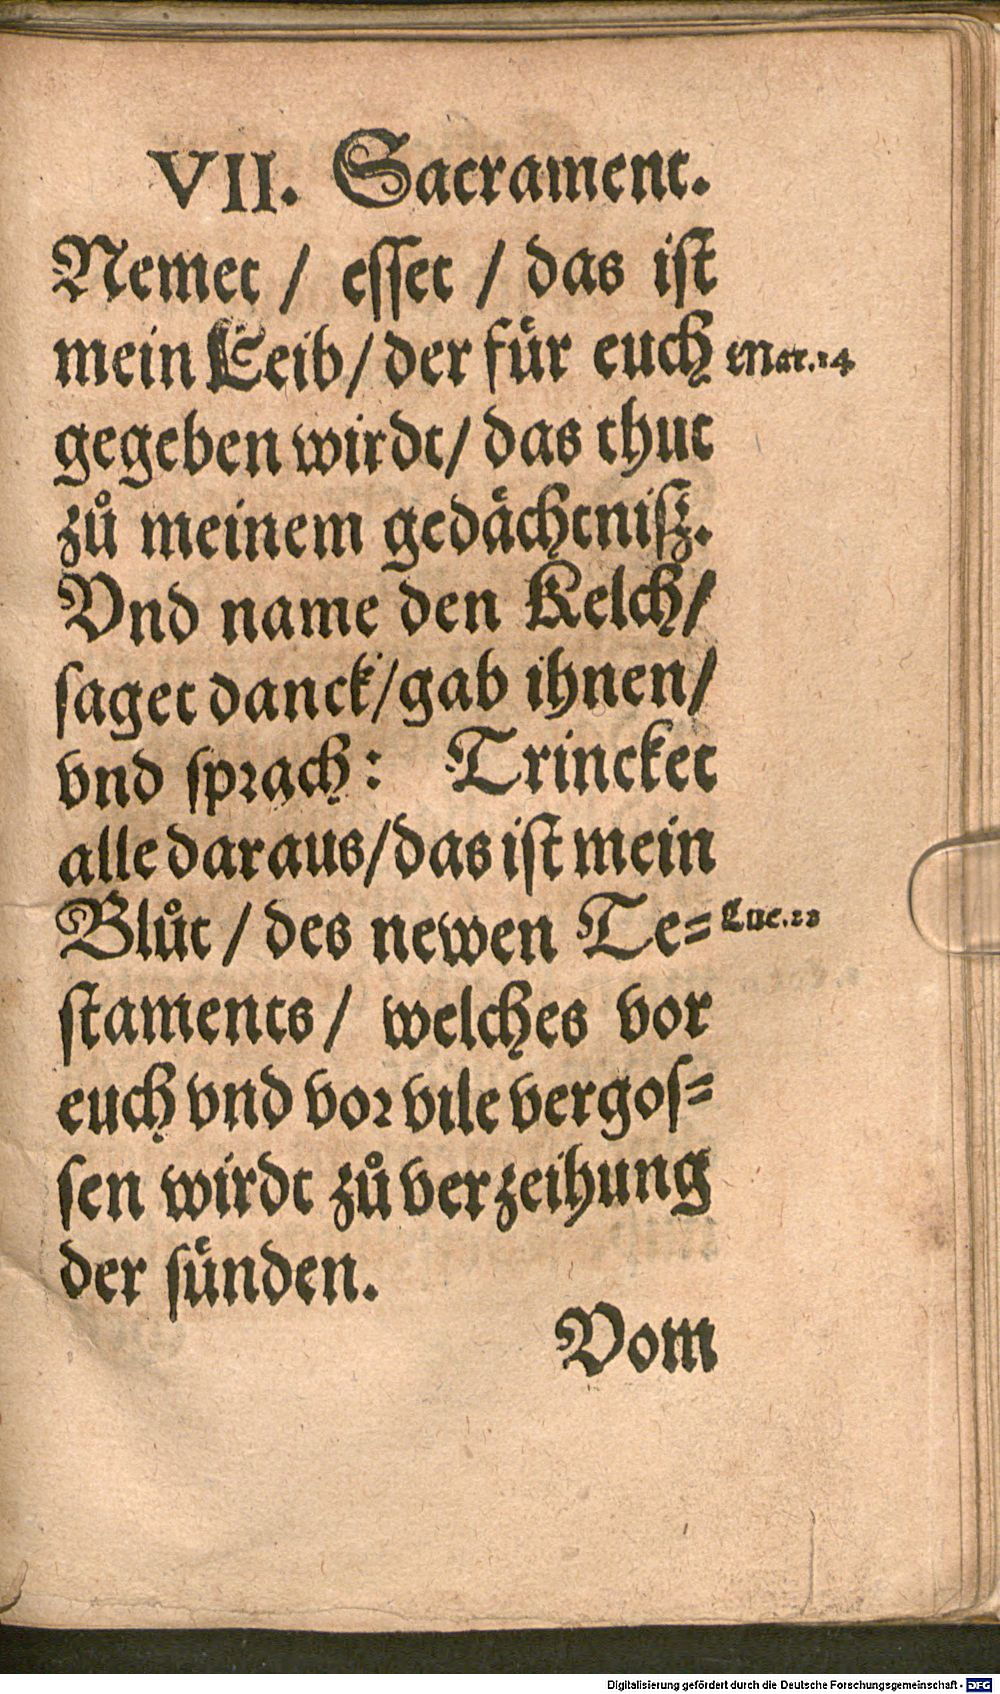 VII. Sacrament.
Nemet / esset / das ist
mein Leib / der für euch
Mar.14
gegeben wirdt / das thut
zů meinem gedächtnisz.
Vnd name den Kelch /
saget danck / gab ihnen /
vnd sprach: Trincket
alle daraus / das ist mein
Blůt / des newen Te=
Luc.22
staments / welches vor
euch vnd vor vile vergos=
sen wirdt zů verzeihung
der sünden.
Vom
Digitalisierung gefördert durch die Deutsche Forschungsgemeinschaft - DFG